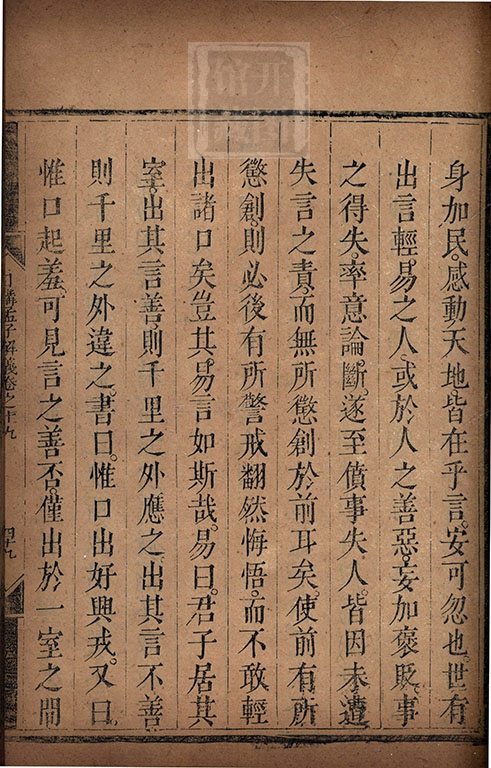 身加民。感動天地皆在乎言。安可忽也。世有
出言輕易之人。或於人之善惡。妄加褒貶。事
之得失。率意論斷。遂至僨事失人。皆因未遭
失言之責。而無所懲創於前耳矣。使前有所
懲創。則必後有所警戒。翻然悔悟。而不敢輕
出諸口矣。豈其易言如斯哉。易曰。君子居其
室。出其言善。則千里之外應之。出其言不善。
則千里之外違之。書曰。惟口出好興戎。又曰。
惟口起羞。可見言之善否。僅出於一室之間
日講孟子解義卷之十九
四十九